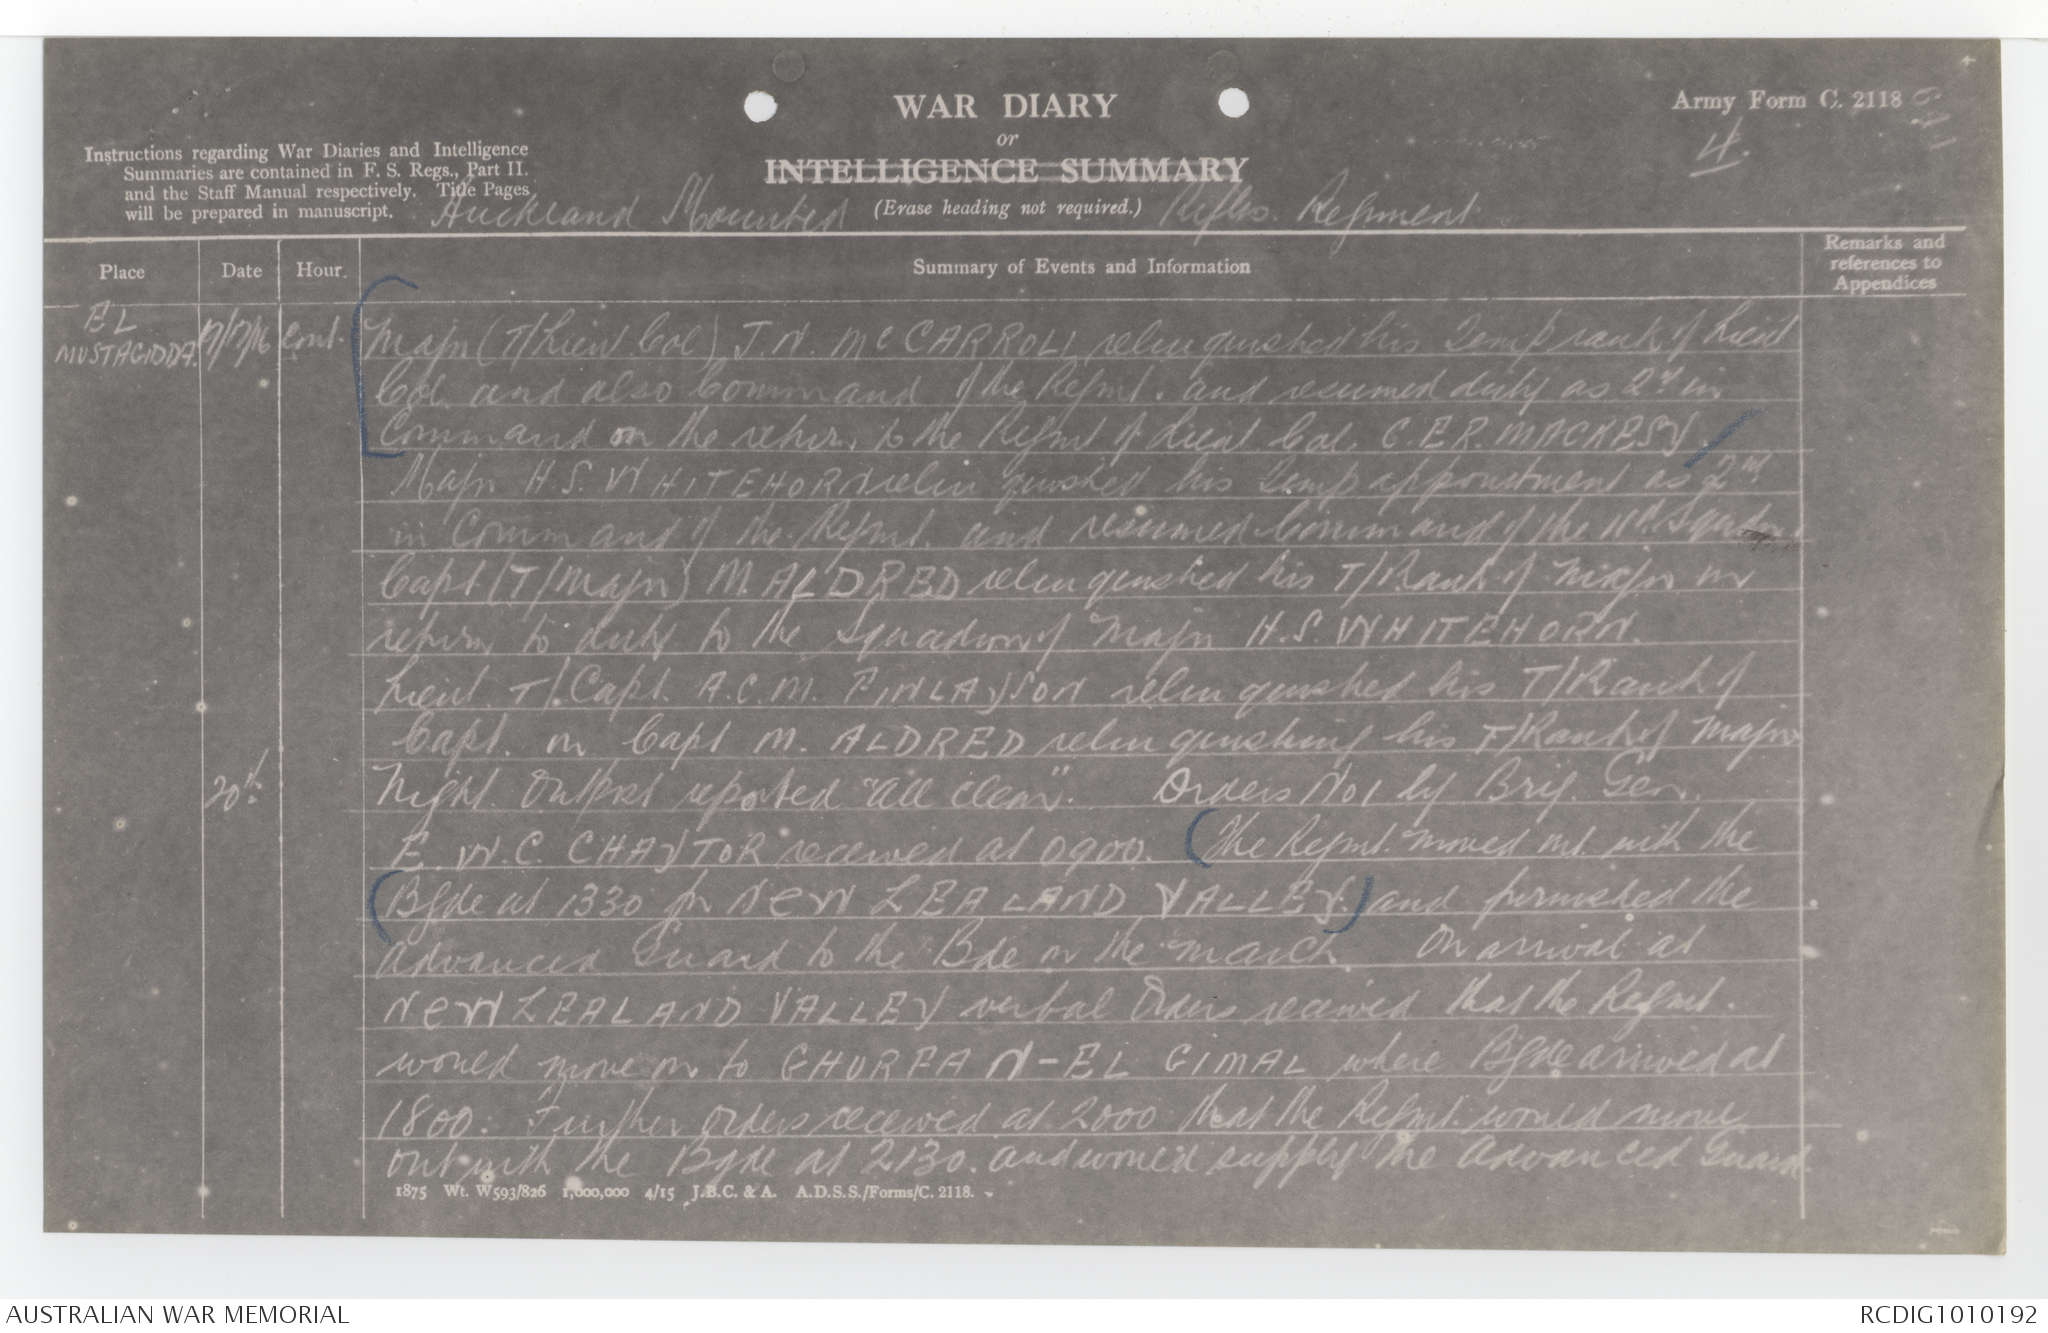 WAR DIARY
or
INTELLIGENCE SUMMARY
(Erase heading not required.)
Army Form C. 2118
4.
Instructions regarding War Diaries and Intelligence
Summaries are contained in F. S. Regs., Part II.
and the Staff Manual respectively. Title Pages
will be prepared in manuscript.
Auckland Mounted Rifles Regiment
Place
Date
Hour.
Summary of Events and Information
Remarks and
references to
Appendices
EL
MUSTAGIDDA. 19/12/16 cont.
Major (T/Lieut Col) J N McCARROLL relinquished his Temp rank of Lieut
Col. and also Command of the Regmt. and resumed duty as 2nd in
Command on the return to the Regmt of Lieut Col. C.E.R. MACKESY.
Major H.S. WHITEHORN relinquished his Temp appointment as 2nd
in Command of the Regmt. and resumed Command of the 11th Squdn.
Capt (T/Major) M. ALDRED relinquished his T/Rank of Major on
return to duty to the Squadron of Major H.S. WHITEHORN.
Lieut T/Capt. A.C.M. FINLAYSON relinquished his T/Rank of
Capt. on Capt M. ALDRED relinquishing his T/Rank of Major
20th Night Outpost reported "all clear". Orders No 1 by Brig. Gen.
E.W.C. CHAYTOR received at 0900. (The Regmt. moved out with the
Bgde at 1330 for NEW ZEALAND VALLEY) and furnished the
Advanced Guard to the Bde on the march. On arrival at
NEW ZEALAND VALLEY verbal Orders received that the Regmt.
would move on to GHURFAN-EL GIMAL where Bgde arrived at
1800. Further orders received at 2000 that the Regmt. would move
out with the Bgde at 2130. and would supply the Advanced Guard.
1875 Wt. W593/826 1,000,000 4/15 J.B.C. & A. A.D.S.S./Forms/C. 2118.
AUSTRALIAN WAR MEMORIAL
RCDIG1010192